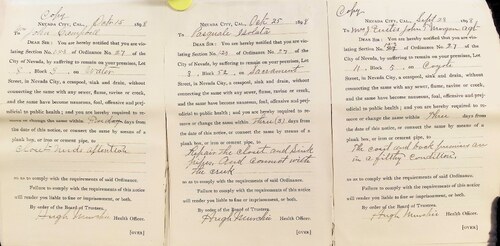 Copy
NEVADA CITY, CAL. Feb 15 1898
To John
DEAR SIR: You are hereby notified that you are vio-
lating Section No. of Ordinance No. 27 of the
City of Nevada, by suffering to remain on your premises, Lot
8, Block 3, in Water
Street, in Nevada City, a cesspool, sink and drain, without
connecting the same with any sewer, flume, ravine or creek,
and the same have become nauseous, foul, offensive and prej-
udicial to public health; and you are hereby required to re-
move or change the same within days from
the date of this notice, or connect the same by means of a
plank box, or iron or cement pipe, to
closet needs attention
so as to comply with the requirements of said Ordinance.
Failure to comply with the requirements of this notice
will render you liable to fine or imprisonment, or both.
By order of the Board of Trustees.
Hugh Health Officer.
[OVER]
NEVADA CITY, CAL. Feb 25 1898
To Pasquale
DEAR SIR: You are hereby notified that you are vio-
lating Section No. of Ordinance No. 27, of the
City of Nevada, by suffering to remain on your premises, Lot
8, Block 52, in Sacrament
Street, in Nevada City, a cesspool, sink and drain, without
connecting the same with any sewer, flume, ravine or creek,
and the same have become nauseous, foul, offensive and prej-
udicial to public health; and you are hereby required to re-
move or change the same within Three (3) days from
the date of this notice, or connect the same by means of a
plank box, or iron or cement pipe, to
Repair the closet and sink
pipes and connect with
the creek
so as to comply with the requirements of said Ordinance.
Failure to comply with the requirements of this notice
will render you liable to fine or imprisonment, or both.
By order of the Board of Trustees.
Hugh Health Officer.
[OVER]
Copy
NEVADA CITY, CAL. Sept 23 1898
To Mary Eustis John agt
DEAR SIR: You are hereby notified that you are vio-
lating Section No. of Ordinance No. 27, of the
City of Nevada, by suffering to remain on your premises, Lot
11, Block 8, in Coyote
Street, in Nevada City, a cesspool, sink and drain, without
connecting the same with any sewer, flume, ravine or creek,
and the same have become nauseous, foul, offensive and prej-
udicial to public health; and you are hereby required to re-
move or change the same within three days from
the date of this notice, or connect the same by means of a
plank box, or iron or cement pipe, to
the closet and back premises are
in a filthy condition.
so as to comply with the requirements of said Ordinance.
Failure to comply with the requirements of this notice
will render you liable to fine or imprisonment, or both.
By order of the Board of Trustees.
Hugh Health Officer.
[OVER]